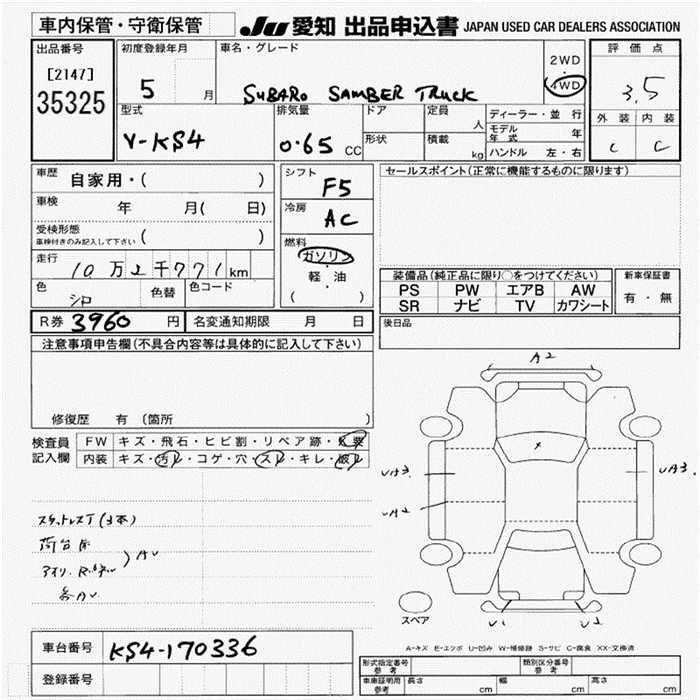 車内保管・守衛保管
JU 愛知 出品申込書 JAPAN USED CAR DEALERS ASSOCIATION
出品番号
[2147]
35325
初度登録年月
5 月
車名・グレード
SUBARO SAMBER TRUCK
2WD
4WD
評価点
3.5
外装 内装
C C
型式
V-KS4
排気量
0.65 CC
ドア
形状
定員
人
積載
kg
ディーラー・並行
モデル年式 年
ハンドル 左・右
車歴
自家用・( )
車検
年 月( 日)
受検形態
車検付きのみ記入して下さい ( )
走行
10万2千771km
色
シロ
色替
色コード
シフト
F5
冷房
AC
燃料
ガソリン
軽・油
( )
セールスポイント(正常に機能するものに限ります)
装備品(純正品に限り○をつけてください)
PS PW エアB AW
SR ナビ TV カワシート
新車保証書
有・無
後日品
R券 3960 円
名変通知期限 月 日
注意事項申告欄(不具合内容等は具体的に記入して下さい)
修復歴 有 〔箇所 〕
検査員記入欄
FW キズ・飛石・ヒビ割・リペア跡・X要
内装 キズ・汚れ・コゲ・穴・スレ・キレ・破れ
スタットレスT(3本)
荷台
A2
UA3.
UA2
UA3.
U1
U2
スペア
A-キズ E-エクボ U-凹み W-補修跡 S-サビ C-腐食 XX-交換済
車台番号
KS4-170336
登録番号
形式指定番号
参考
類別区分番号
参考
車庫証明用
参考
長さ cm
幅 cm
高さ cm